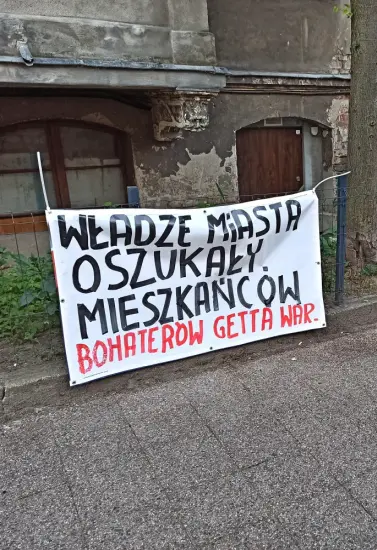 WŁADZE MIASTA
OSZUKAŁY
MIESZKAŃCÓW
BOHATERÓW GETTA WAR.